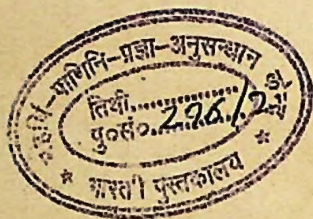 महर्षि-पाणिनि-प्रज्ञा-अनुसन्धान
तिथी..................
पु०सं०.296/2
* भारती पुस्तकालय *